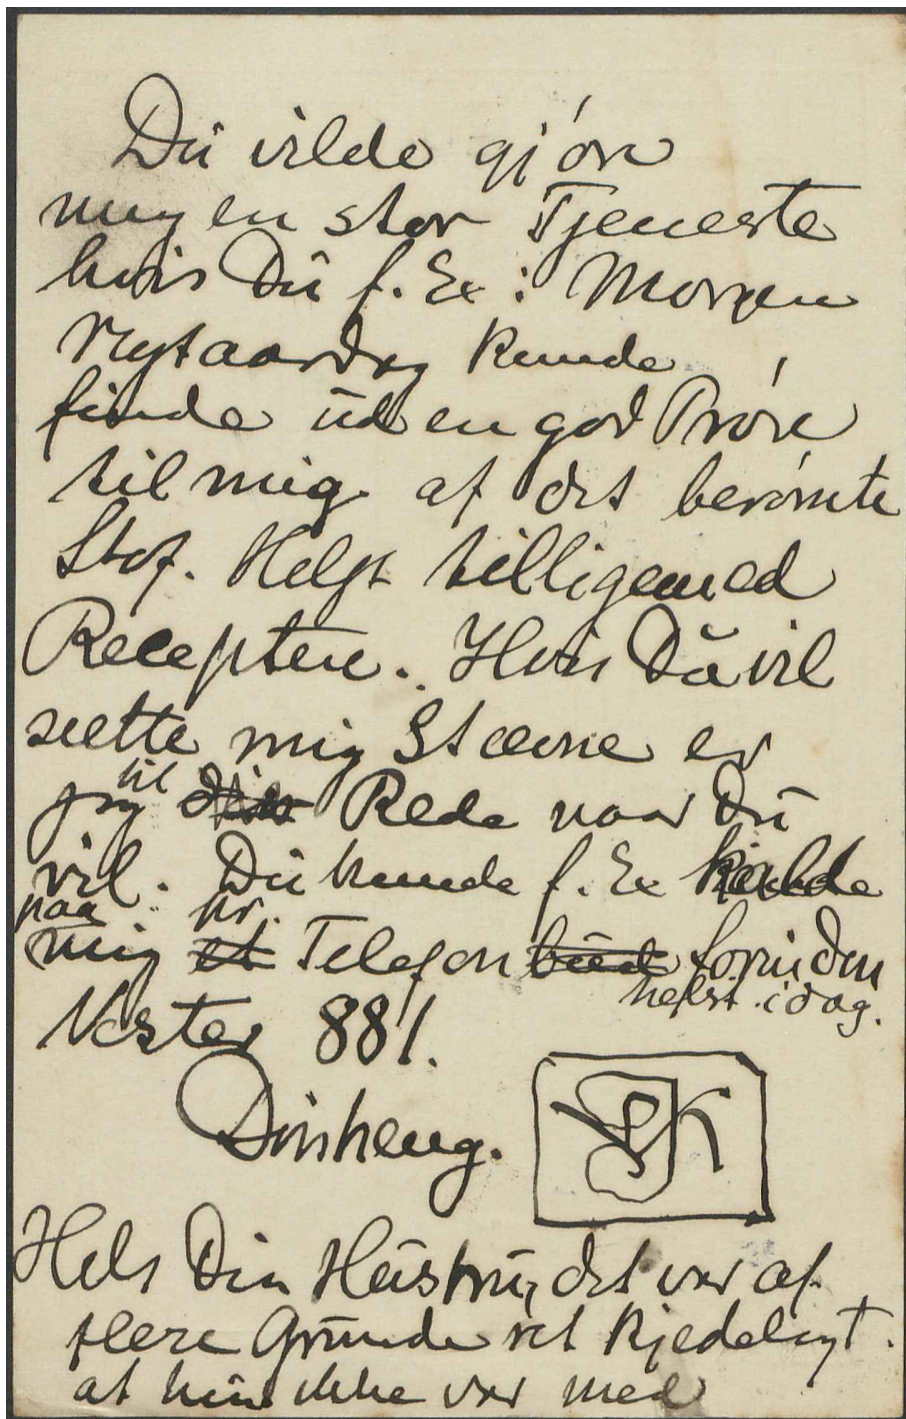 Du vilde gjøre
mig en stor Tjeneste
hvis Du f. Ex: Morgen
Nytaarsdag kunde
finde ud en god Prøve
til mig af det berømte
Stof. Helst tilligemed
Recepten. Hvis Du vil
sætte mig Stævne er
jeg til Rede naar Du
vil. Du kunde f. Ex kalde
paa pr.
mig et Telefon bud forinden
helst idag.
Vester 881.
Din heng.
Hils Din Hustru, det var af
flere Grunde ret kjedeligt.
at hun ikke var med